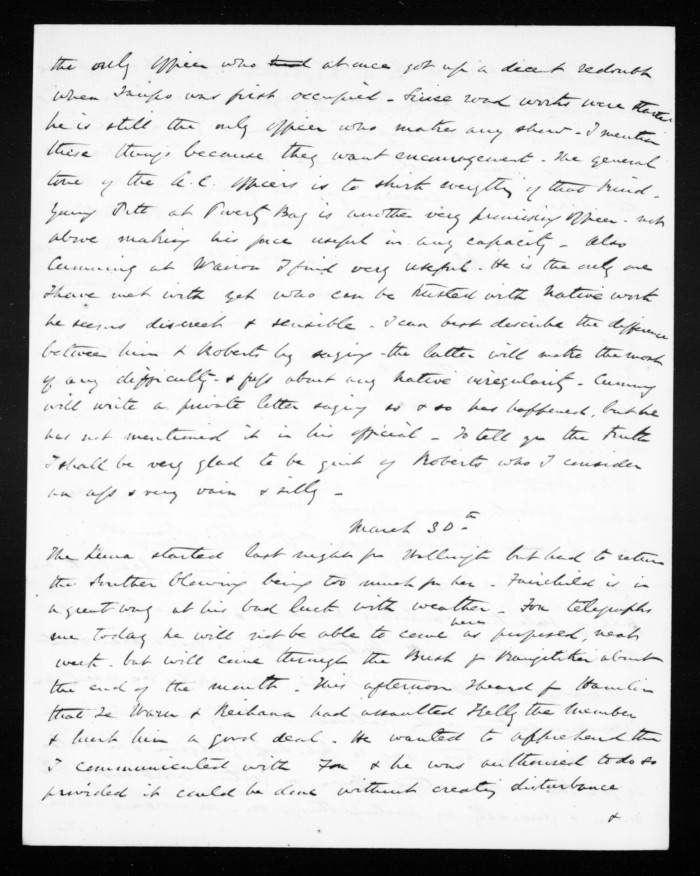 the only officer who had at once got up a decent redoubt
when Taupo was first occupied - Since road works were started
he is still the only officer who makes any show - I mention
these things because they want encouragement - The general
tone of the A.C. officers is to shirk everything of that kind -
Young Pitt at Poverty Bay is another very promising officer - not
above making his force useful in any capacity - Also
Cumming at Wairoa I find very useful - He is the only one
I have met with yet who can be trusted with native work
he seems discreet & sensible - I can best describe the difference
between him & Roberts by saying - the latter will make the most
of any difficulty - & fuss about any native irregularity - Cumming
will write a private letter saying so & so has happened, but he
has not mentioned it in his official - To tell you the truth
I shall be very glad to be quit of Roberts who I consider
an ass & very vain & silly -
March 30th
The Luna started last night for Wellington but had to return
the Souther blowing being too much for her - Fairchild is in
a great way at his bad luck with weather - Fox telegraphs
me today he will not be able to come here as proposed, next
week - but will come through the Bush fr Rangitikei about
the end of the month - This afternoon I heard fr Hamlin
that Te Waru & Reihana had assaulted Kelly the Member
& hurt him a good deal - He wanted to apprehend them
I communicated with Fox & he was authorised to do so
provided it could be done without creating disturbance
&